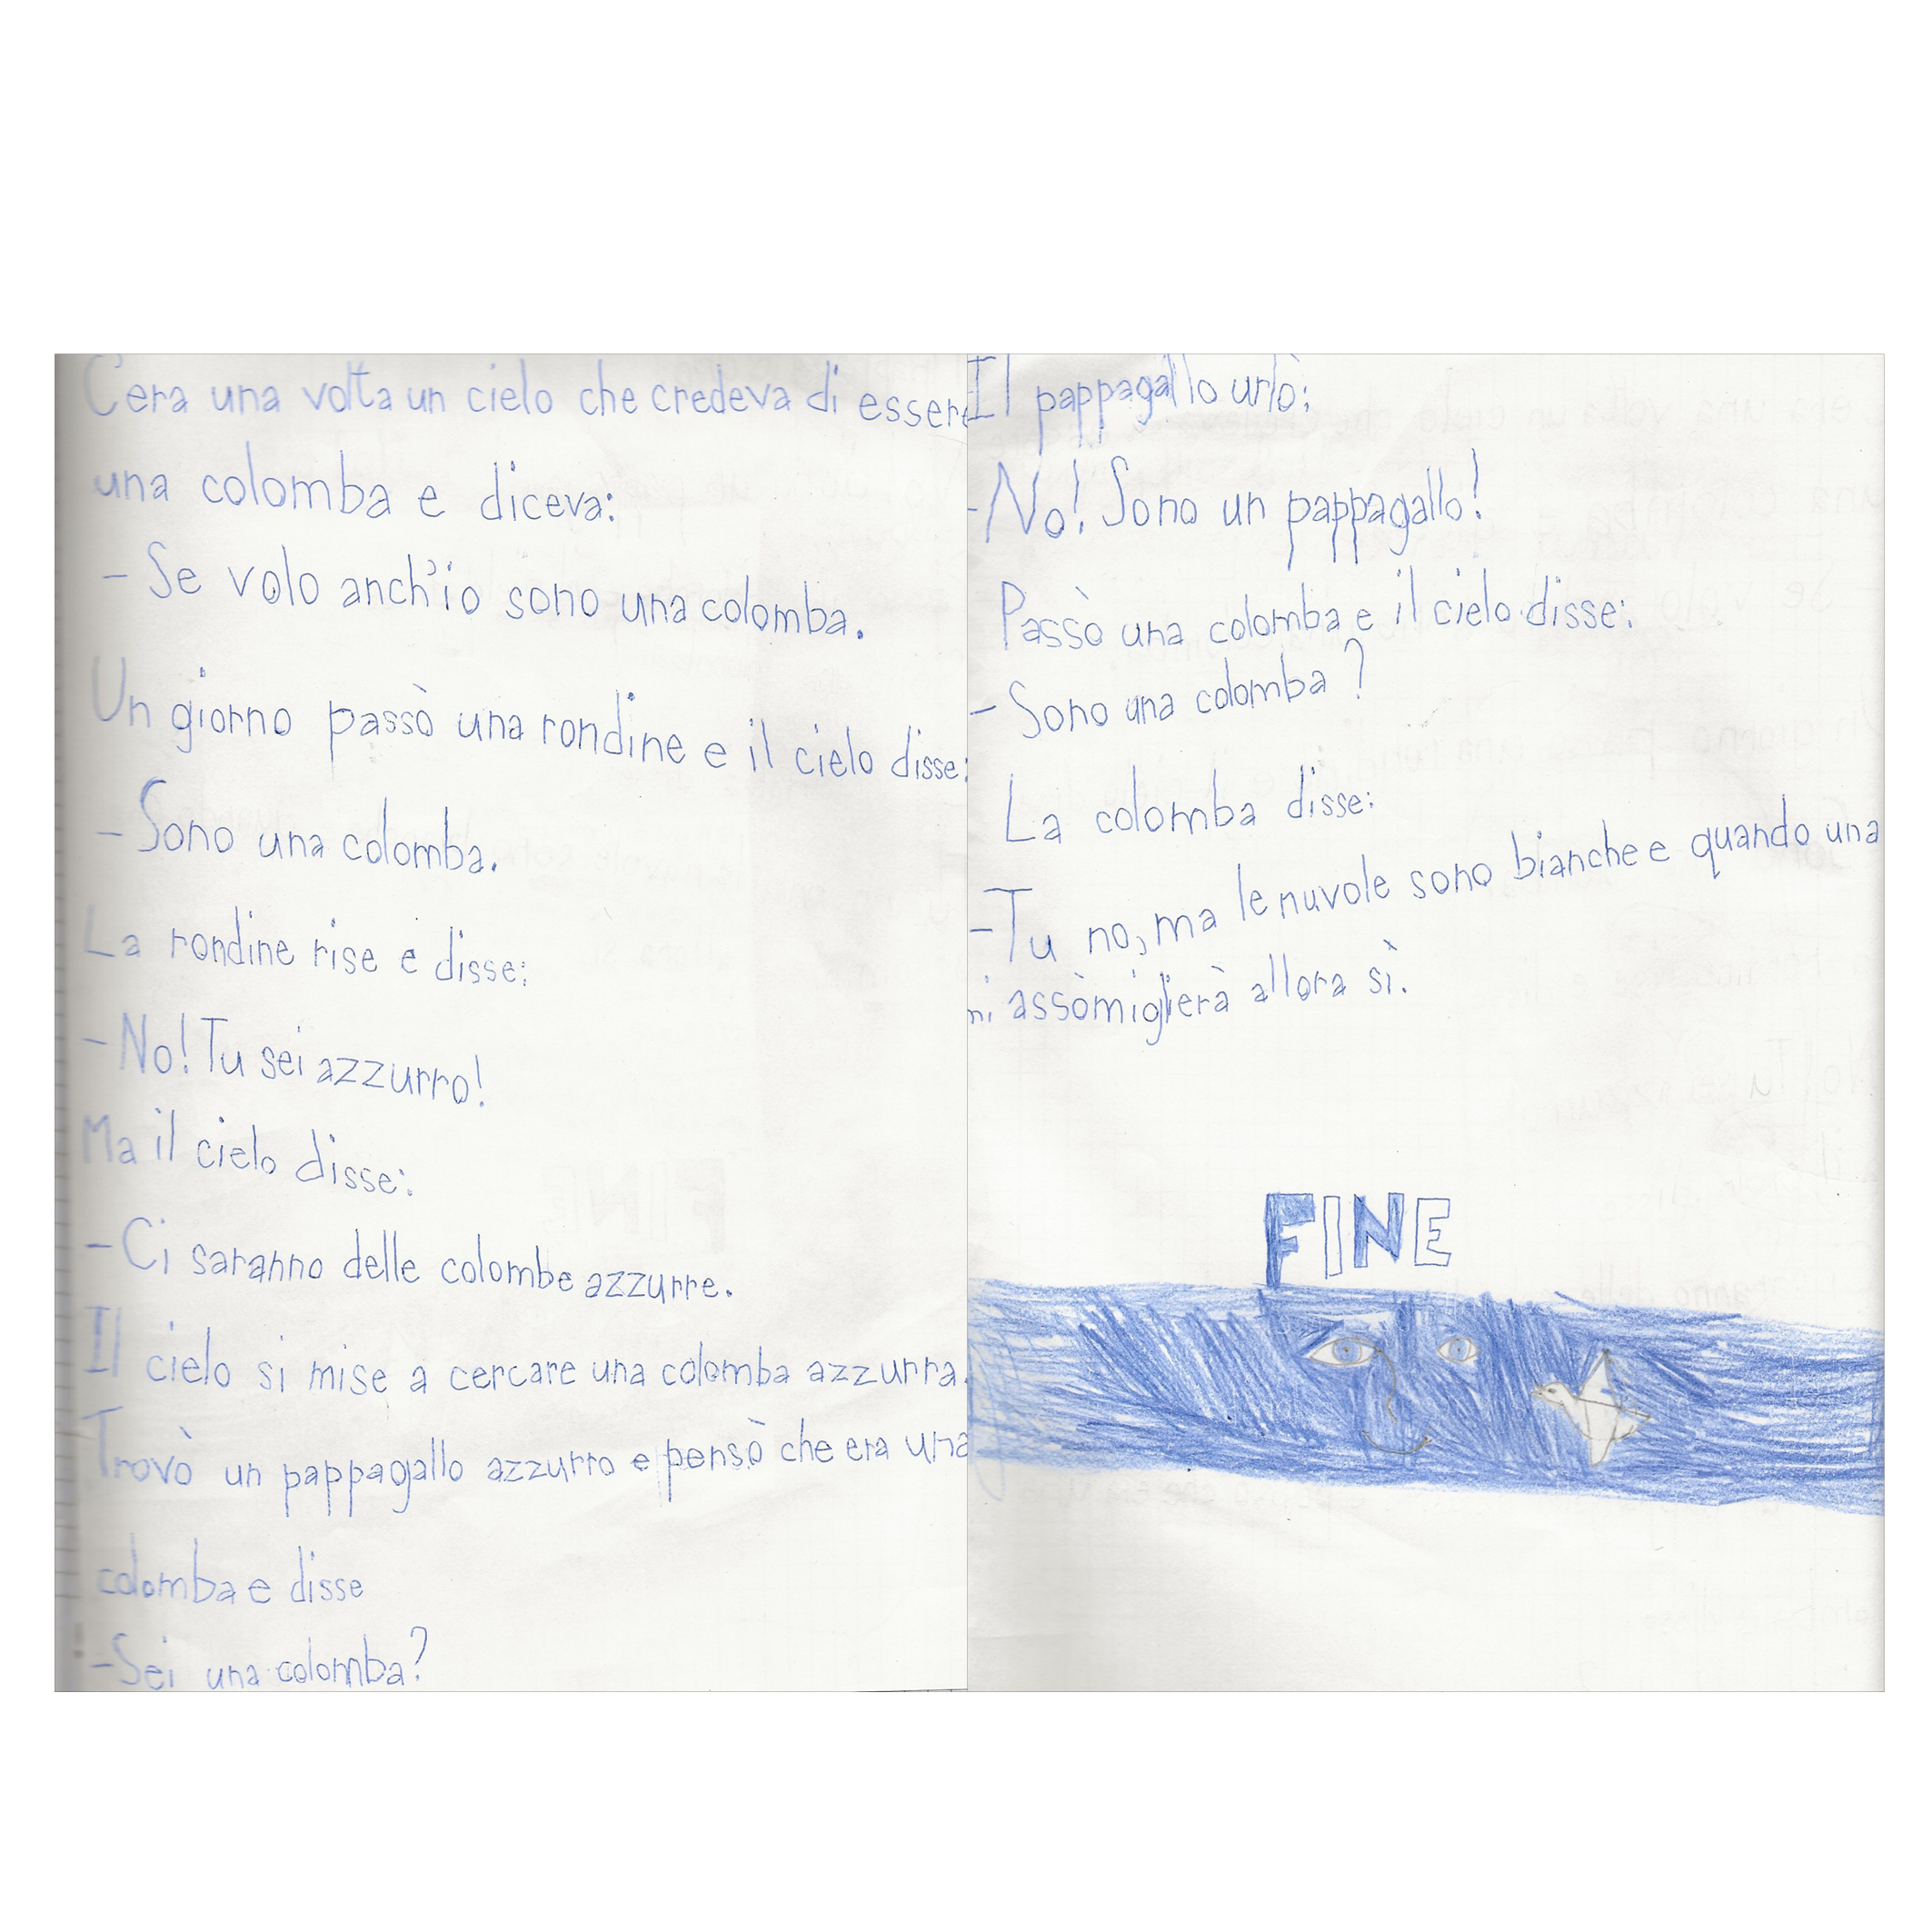 C'era una volta un cielo che credeva di essere
una colomba e diceva:
- Se volo anch'io sono una colomba.
Un giorno passò una rondine e il cielo disse:
- Sono una colomba.
La rondine rise e disse:
- No! Tu sei azzurro!
Ma il cielo disse:
- Ci saranno delle colombe azzurre.
Il cielo si mise a cercare una colomba azzurra.
Trovò un pappagallo azzurro e pensò che era una
colomba e disse
- Sei una colomba?
Il pappagallo urlò:
- No! Sono un pappagallo!
Passò una colomba e il cielo disse:
- Sono una colomba?
La colomba disse:
- Tu no, ma le nuvole sono bianche e quando una
mi assomiglierà allora sì.
FINE